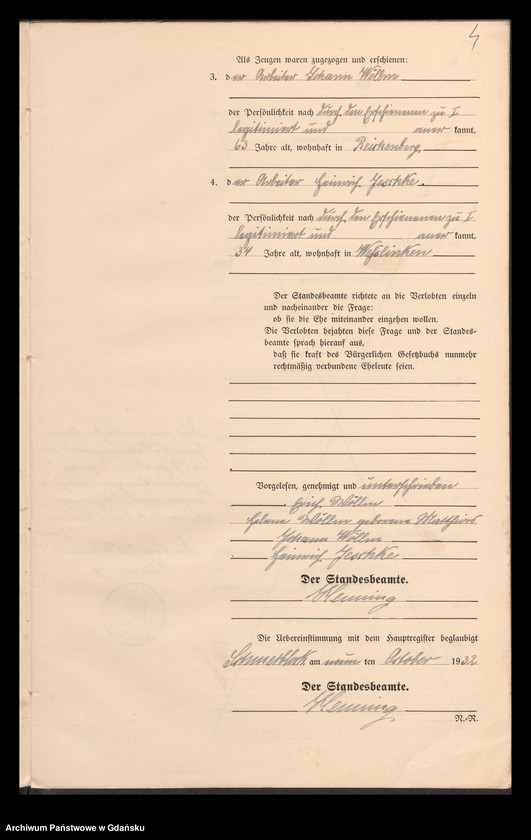 4
Als Zeugen waren zugezogen und erschienen:
3. der Arbeiter Johann Wöllm
der Persönlichkeit nach durch den Erschienenen zu I
legitimiert und aner kannt,
63 Jahre alt, wohnhaft in Reichenberg
4. der Arbeiter Heinrich Jeschke.
der Persönlichkeit nach durch den Erschienenen zu I
legitimiert und aner kannt,
34 Jahre alt, wohnhaft in Weßlinken
Der Standesbeamte richtete an die Verlobten einzeln
und nacheinander die Frage:
ob sie die Ehe miteinander eingehen wollen.
Die Verlobten bejahten diese Frage und der Standes-
beamte sprach hierauf aus,
daß sie kraft des Bürgerlichen Gesetzbuchs nunmehr
rechtmäßig verbundene Eheleute seien.
Vorgelesen, genehmigt und unterschrieben
Erich Wöllm
Helene Wöllm geborene
Johann Wöllm
Heinrich Jeschke
Der Standesbeamte.
Henning
Die Uebereinstimmung mit dem Hauptregister beglaubigt
am neun ten October 1932
Der Standesbeamte.
Henning
N.-R.
Archiwum Państwowe w Gdańsku